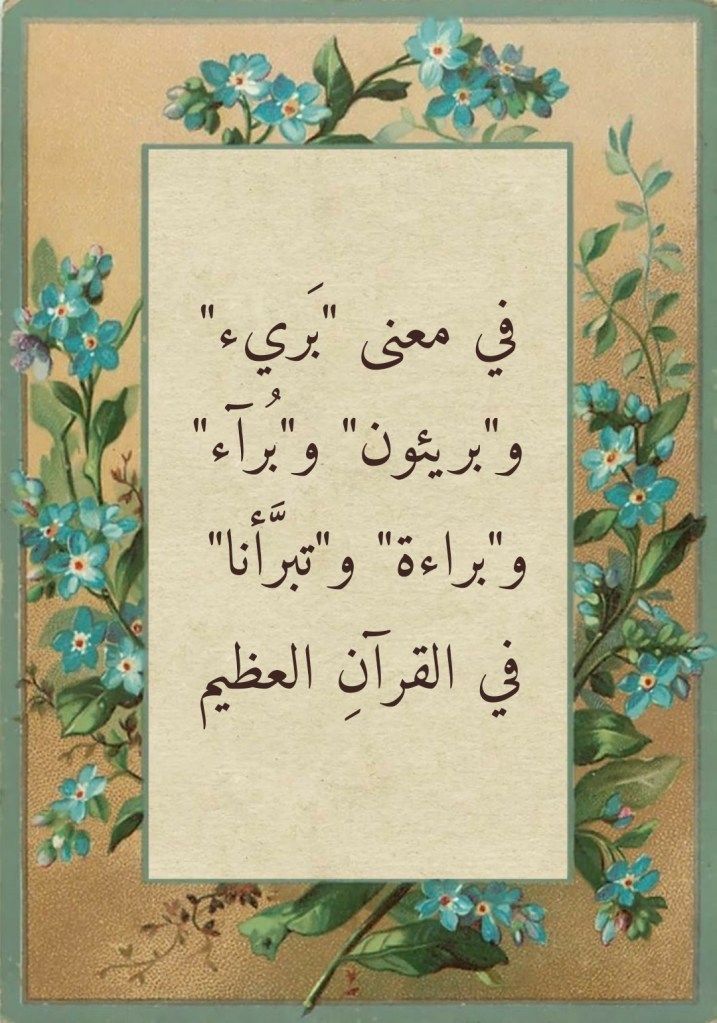 في معنى "بَريء"
و"بريئون" و"بُرآء"
و"براءة" و"تبرَّأنا"
في القرآنِ العظيم